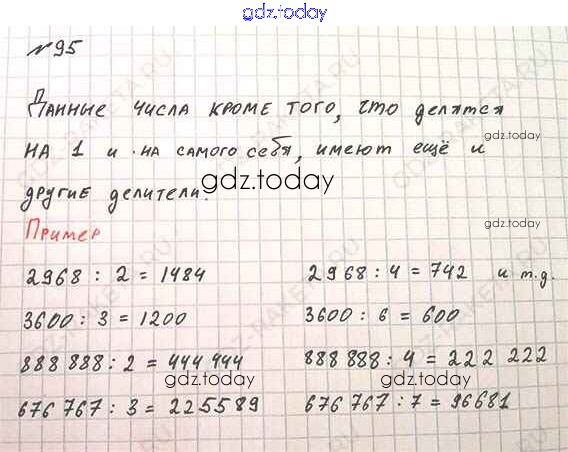 gdz.today
№95
Данные числа кроме того, что делятся
gdz.today
на 1 и на самого себя, имеют ещё и
gdz.today
другие делители.
gdz.today
Пример
2968 : 2 = 1484 2968 : 4 = 742 и т.д.
3600 : 3 = 1200 3600 : 6 = 600
888 888 : 2 = 444 444 888 888 : 4 = 222 222
gdz.today gdz.today
676 767 : 3 = 225589 676 767 : 7 = 96681